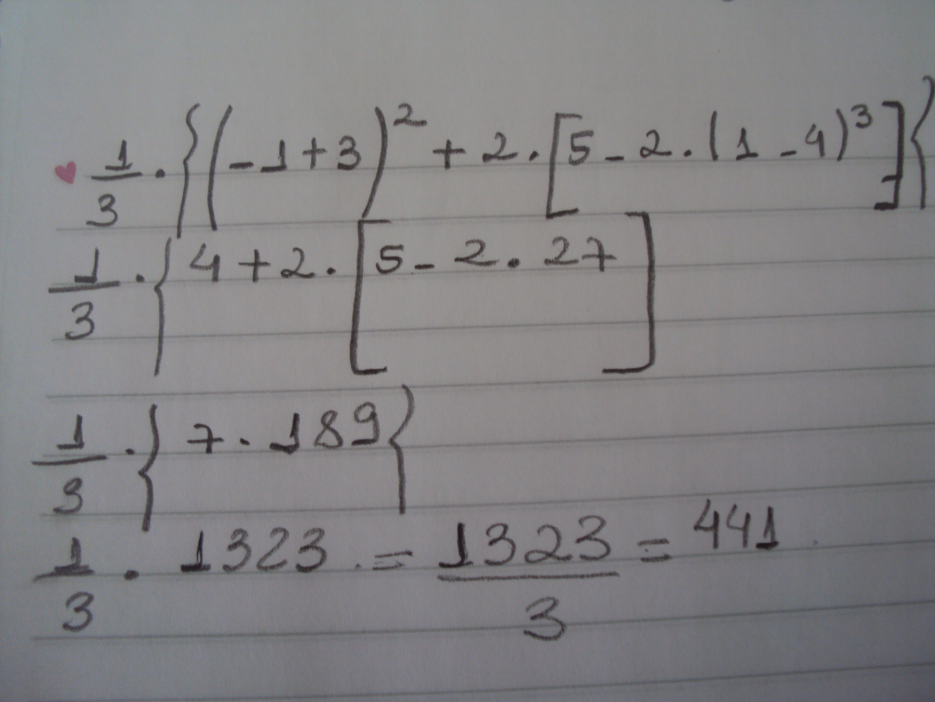 1/3 . {(-1+3)² + 2 . [5 - 2 . (1 - 4)³]}
1/3 . {4 + 2 . [5 - 2 . 27]
1/3 . {7 . 189}
1/3 . 1323 = 1323/3 = 441